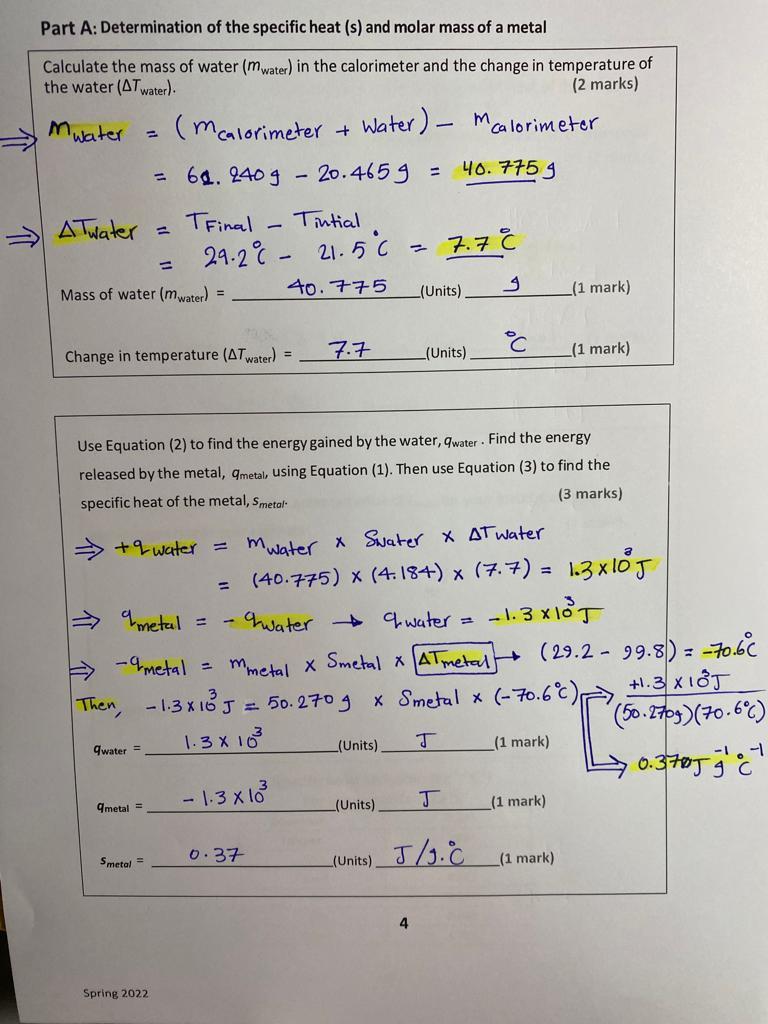 Part A: Determination of the specific heat (s) and molar mass of a metal
Calculate the mass of water (m_water) in the calorimeter and the change in temperature of
the water (ΔT_water). (2 marks)
⇒ m_water = (m_calorimeter + water) - m_calorimeter
= 61.240 g - 20.465 g = 40.775 g
⇒ ΔT_water = T_Final - T_intial
= 29.2°C - 21.5°C = 7.7°C
Mass of water (m_water) = 40.775 (Units) g (1 mark)
Change in temperature (ΔT_water) = 7.7 (Units) °C (1 mark)
Use Equation (2) to find the energy gained by the water, q_water . Find the energy
released by the metal, q_metal, using Equation (1). Then use Equation (3) to find the
specific heat of the metal, s_metal. (3 marks)
⇒ +q_water = m_water x S_water x ΔT_water
= (40.775) x (4.184) x (7.7) = 1.3 x 10³ J
⇒ q_metal = - q_water → q_water = -1.3 x 10³ J
⇒ -q_metal = m_metal x S_metal x ΔT_metal → (29.2 - 99.8) = -70.6°C
Then, -1.3 x 10³ J = 50.270 g x S_metal x (-70.6°C) ⇒ +1.3 x 10³ J
(50.270g)(70.6°C)
q_water = 1.3 x 10³ (Units) J (1 mark)
⇒ 0.370 J g⁻¹ °C⁻¹
q_metal = - 1.3 x 10³ (Units) J (1 mark)
s_metal = 0.37 (Units) J/g.°C (1 mark)
4
Spring 2022